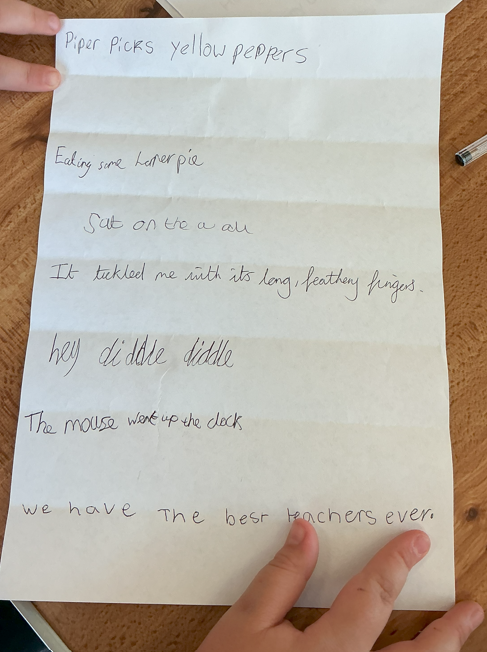 Piper Picks yellow peppers
Eating some homer pie
Sat on the wall
It tickled me with its long, feathery fingers.
hey diddle diddle
The mouse went up the clock
we have The best teachers ever.